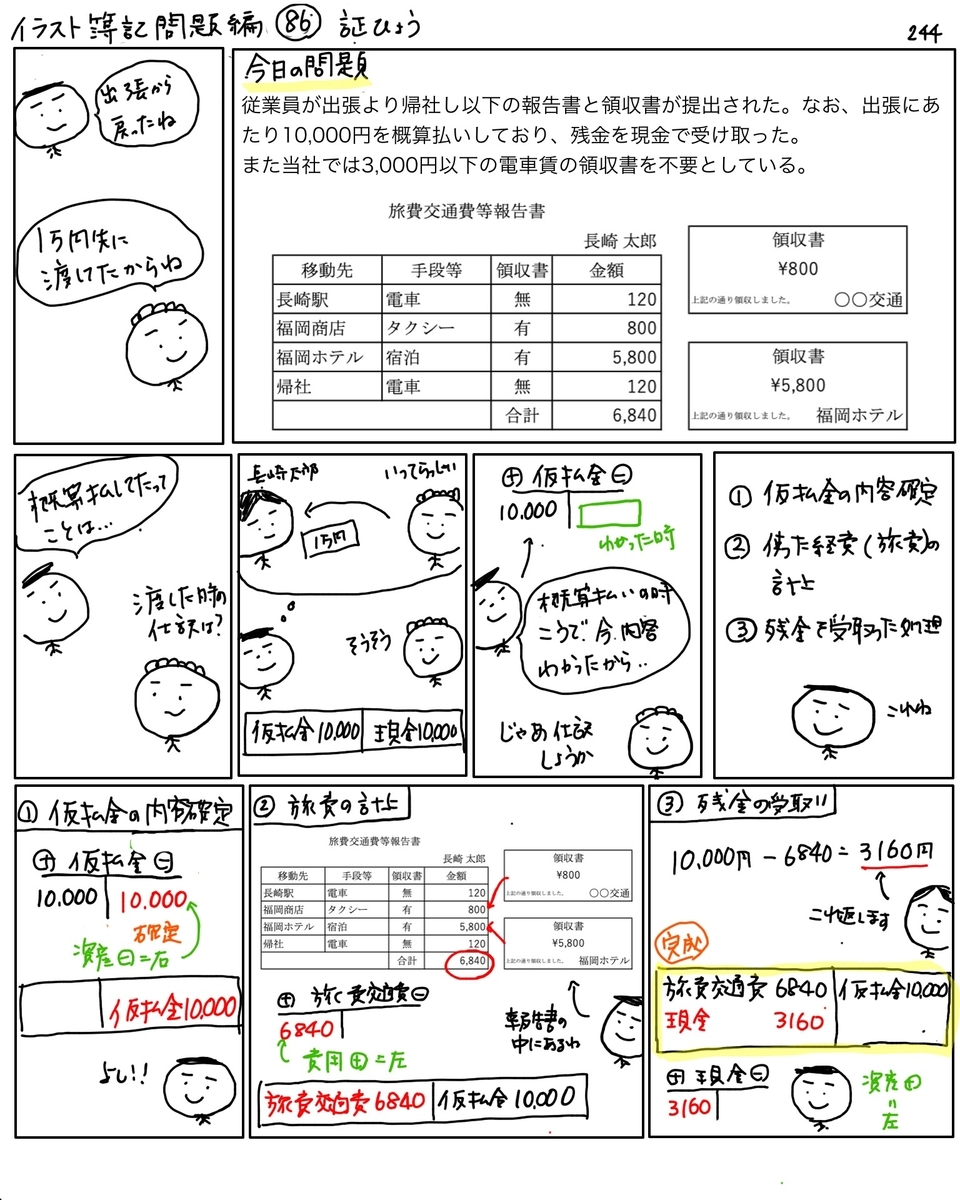 イラスト簿記問題編 86 証ひょう
244
出張から
戻ったね
1万円先に
渡してたからね
今日の問題
従業員が出張より帰社し以下の報告書と領収書が提出された。なお、出張にあ
たり10,000円を概算払いしており、残金を現金で受け取った。
また当社では3,000円以下の電車賃の領収書を不要としている。
旅費交通費等報告書
長崎 太郎
移動先 手段等 領収書 金額
長崎駅 電車 無 120
福岡商店 タクシー 有 800
福岡ホテル 宿泊 有 5,800
帰社 電車 無 120
合計 6,840
領収書
¥800
上記の通り領収しました。 〇〇交通
領収書
¥5,800
上記の通り領収しました。 福岡ホテル
概算払してたって
ことは…
渡した時の
仕訳は?
長崎太郎
いってらっしゃい
1万円
そうそう
仮払金10,000 現金10,000
⊕ 仮払金 ⊖
10,000
わかった時
概算払いの時
こうで今、内容
わかったから..
じゃあ仕訳
しようか
① 仮払金の内容確定
② 使った経費(旅費)の
計上
③ 残金を受取った処理
これね
① 仮払金の内容確定
⊕ 仮払金 ⊖
10,000 10,000
確定
資産⊖=右
仮払金10,000
よし!!
② 旅費の計上
旅費交通費等報告書
長崎 太郎
移動先 手段等 領収書 金額
長崎駅 電車 無 120
福岡商店 タクシー 有 800
福岡ホテル 宿泊 有 5,800
帰社 電車 無 120
合計 6,840
領収書
¥800
上記の通り領収しました。 〇〇交通
領収書
¥5,800
上記の通り領収しました。 福岡ホテル
⊕ 旅費交通費 ⊖
6840
費用⊕=左
報告書の
中にあるね
旅費交通費 6840 仮払金 10,000
③ 残金の受取り
10,000円 − 6840 = 3160円
これ返します
完成
旅費交通費 6840 仮払金10,000
現金 3160
⊕ 現金 ⊖
3160
資産⊕
=
左